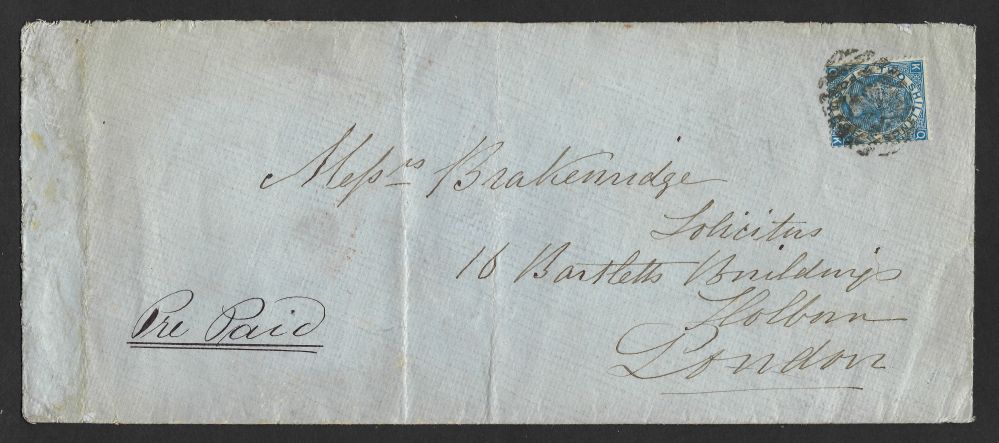 TWO SHILLINGS
K
O
O
K
Messrs Brakenridge
Solicitors
16 Bartletts Buildings
Holborn
London
Pre Paid